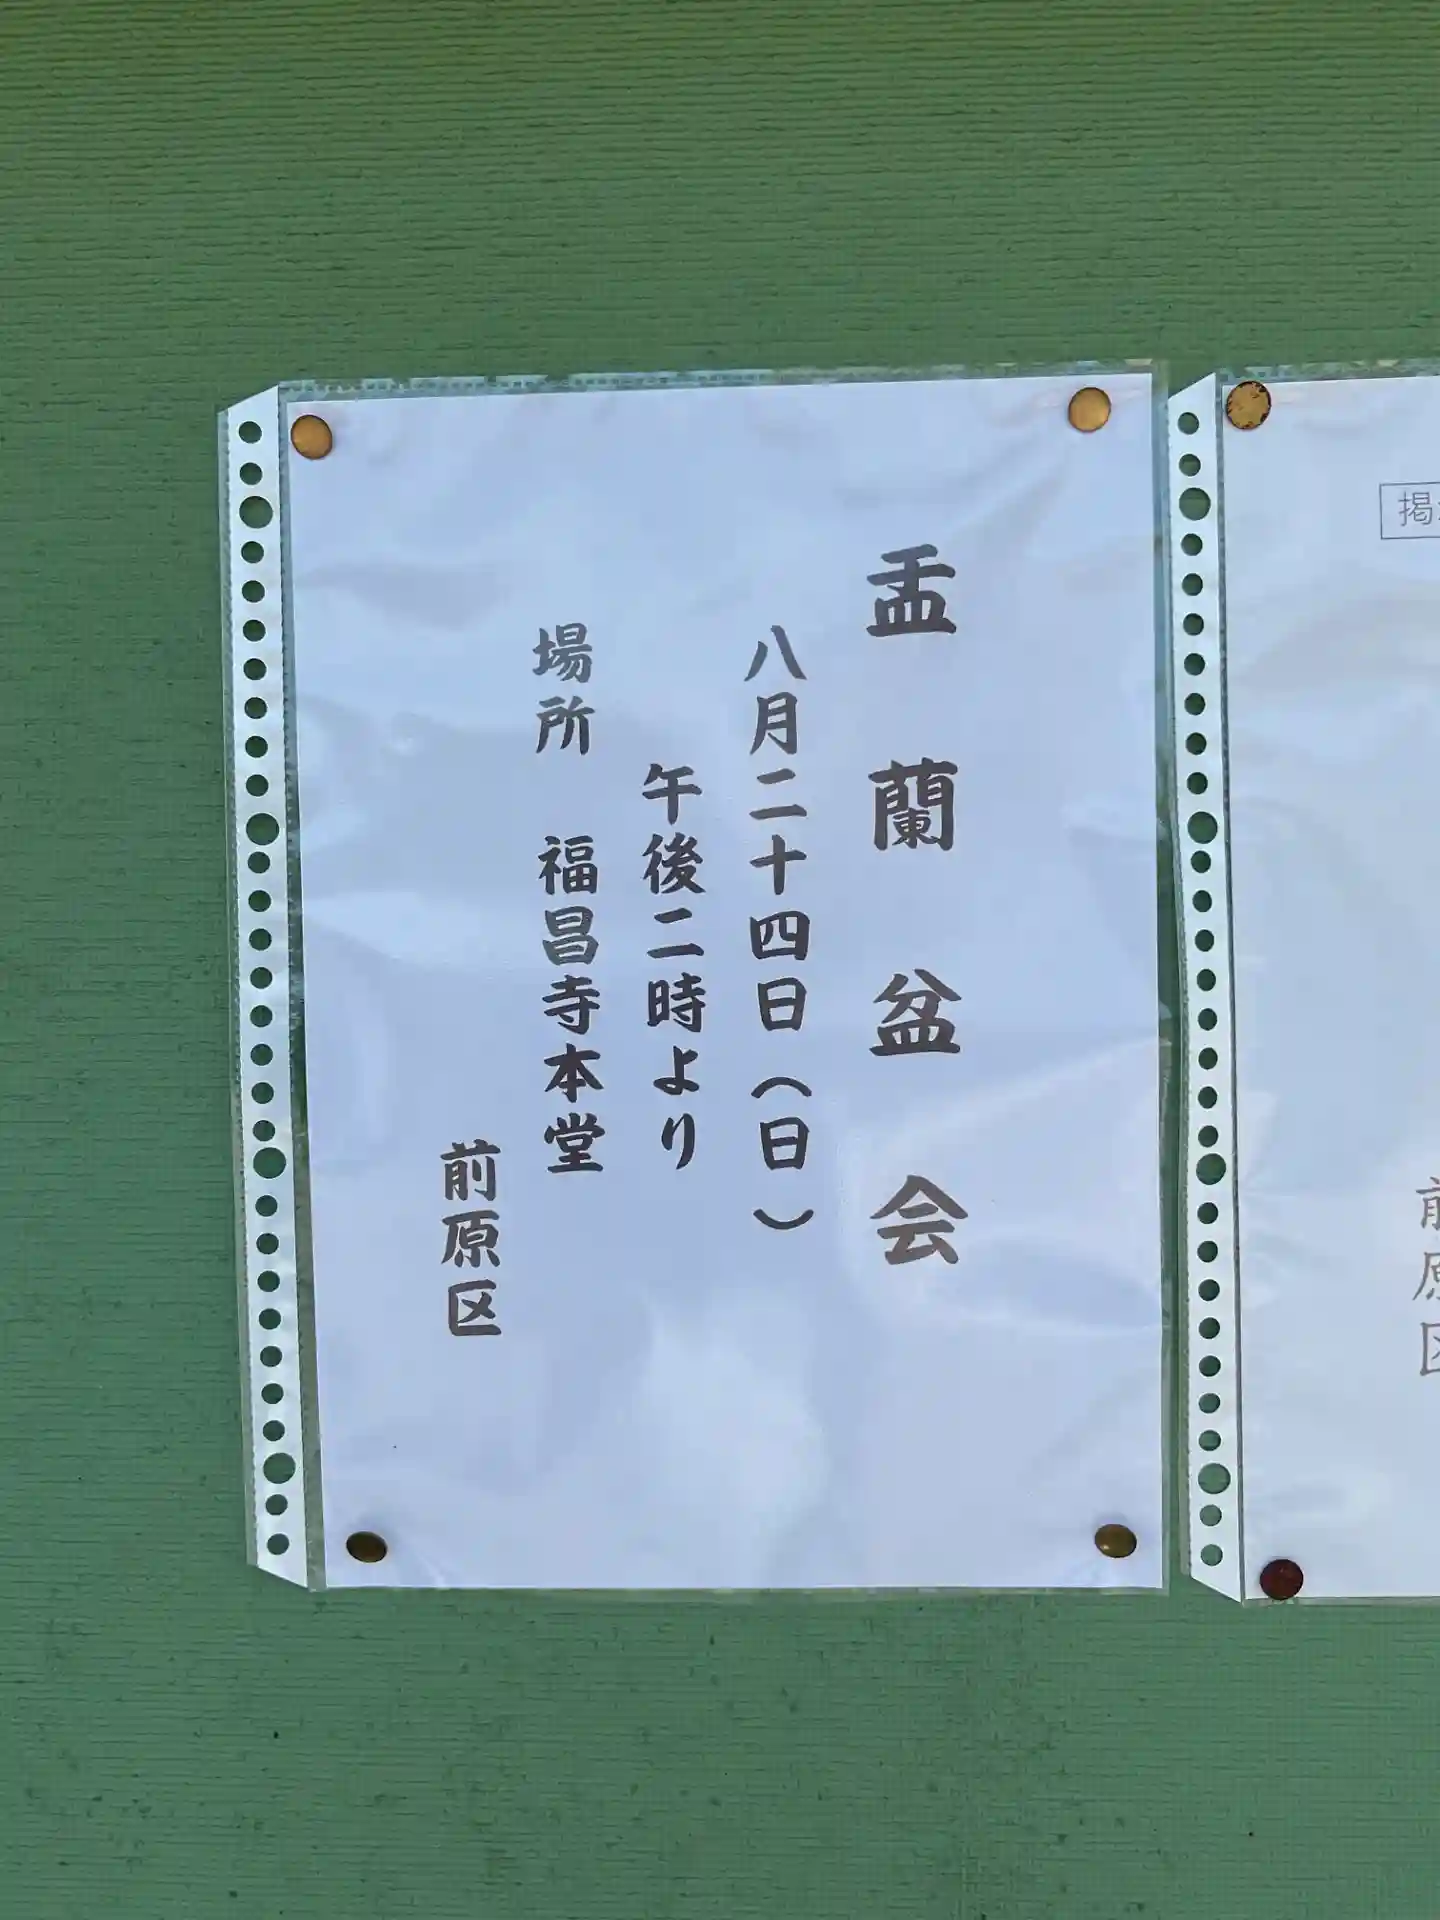 盂蘭盆会
八月二十四日（日）
午後二時より
場所　福昌寺本堂
前原区
掲
前原区